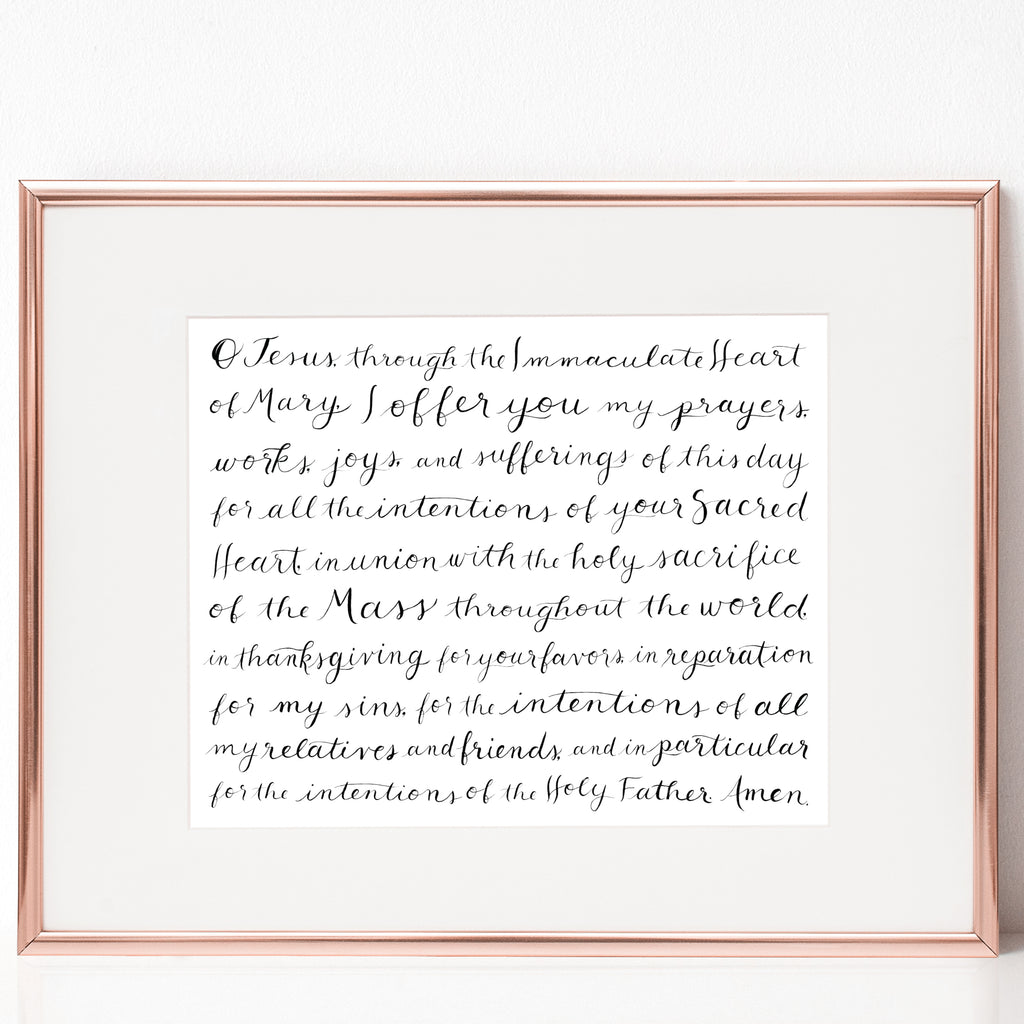 O Jesus, through the Immaculate Heart
of Mary I offer you my prayers,
works, joys, and sufferings of this day
for all the intentions of your Sacred
Heart, in union with the holy sacrifice
of the Mass throughout the world,
in thanksgiving for your favors, in reparation
for my sins, for the intentions of all
my relatives and friends, and in particular
for the intentions of the Holy Father. Amen.